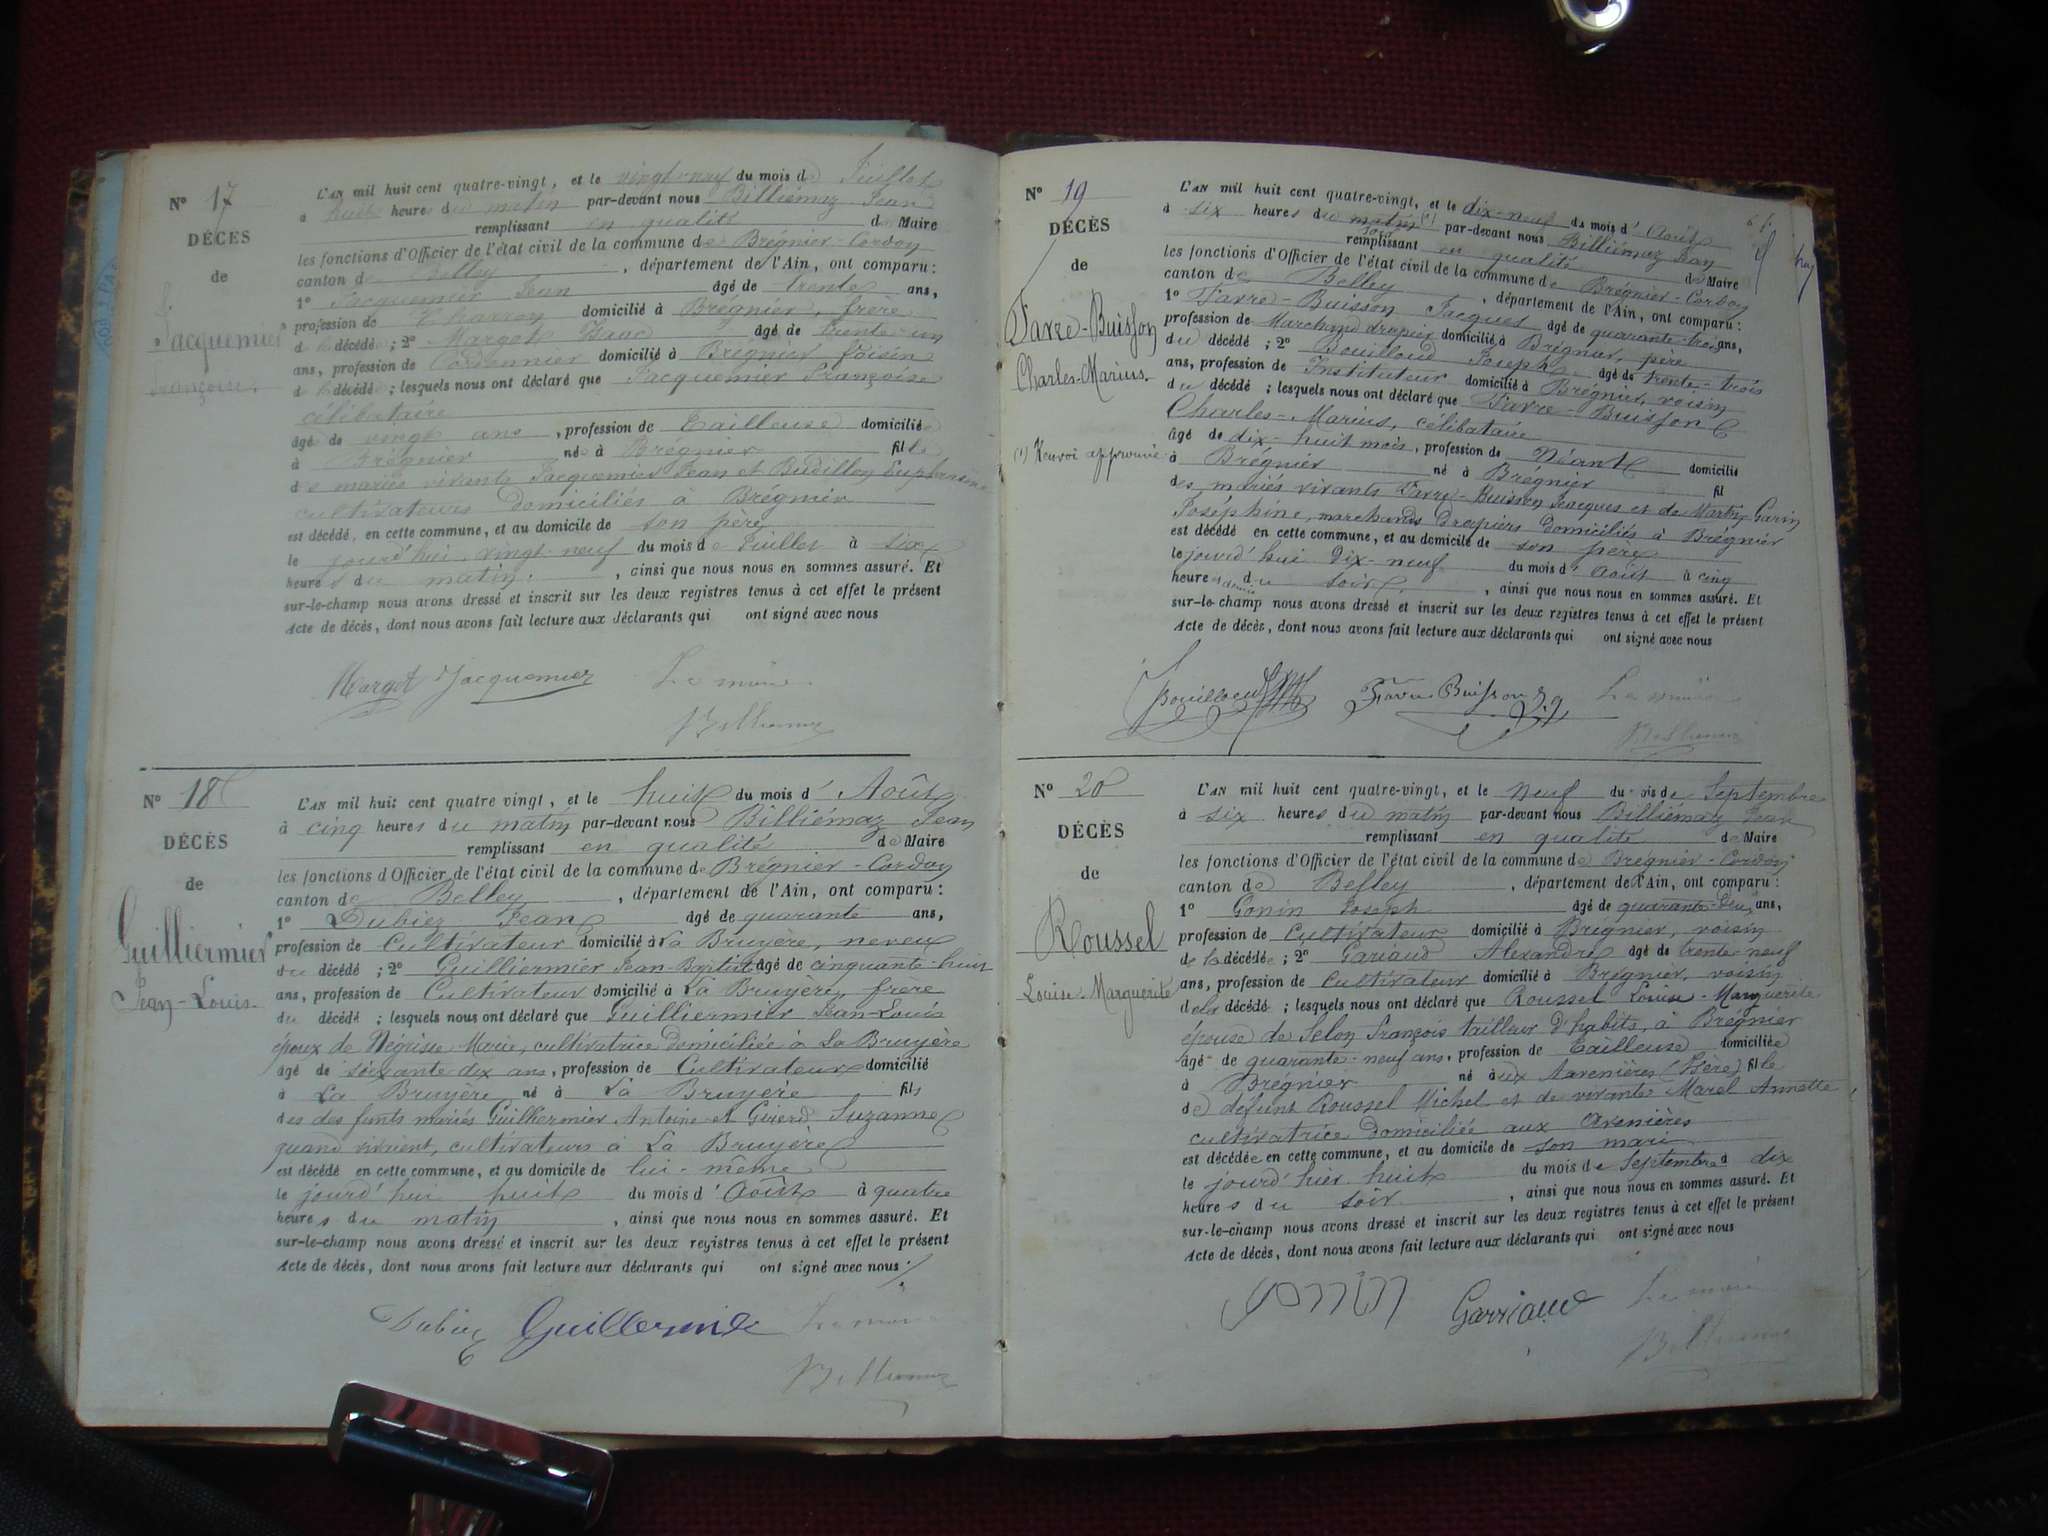 N° 17
DÉCÈS
de
Jacquemier
Françoise.
L'AN mil huit cent quatre-vingt, et le vingt neuf du mois de Juillet
à huit heures du matin par-devant nous Billiémaz Jean
remplissant en qualité de Maire
les fonctions d'Officier de l'état civil de la commune de Brégnier-Cordon
canton de Belley, département de l'Ain, ont comparu:
1° Jacquemier Jean âgé de trente ans,
profession de Charron domicilié à Brégnier, frère
de la décédée; 2° Margot Isaac âgé de trente-un
ans, profession de Cordonnier domicilié à Brégnier, voisin
de la décédée; lesquels nous ont déclaré que Jacquemier Françoise
célibataire
âgé de vingt ans, profession de Tailleuse domiciliée
à Brégnier née à Brégnier fille
de mariés vivants Jacquemier Jean et Budillon
cultivateurs domiciliés à Brégnier
est décédé, en cette commune, et au domicile de son père
le jourd'hui vingt-neuf du mois de Juillet à six
heures du matin., ainsi que nous nous en sommes assuré. Et
sur-le-champ nous avons dressé et inscrit sur les deux registres tenus à cet effet le présent
Acte de décès, dont nous avons fait lecture aux déclarants qui ont signé avec nous
Margot Jacquemier Le maire
Billiemaz
N° 18
DÉCÈS
de
Guilliermier
Jean-Louis.
L'AN mil huit cent quatre vingt, et le huit du mois d'Août
à cinq heures du matin par-devant nous Billiémaz Jean
remplissant en qualité de Maire
les fonctions d'Officier de l'état civil de la commune de Brégnier-Cordon
canton de Belley, département de l'Ain, ont comparu:
1° Dubiez Jean âgé de quarante ans,
profession de Cultivateur domicilié à La Bruyère, neveu
du décédé; 2° Guilliermier Jean-Baptiste âgé de cinquante-huit
ans, profession de Cultivateur domicilié à La Bruyère, frère
du décédé; lesquels nous ont déclaré que Guilliermier Jean-Louis
époux de Marie, cultivatrice domiciliée à La Bruyère
âgé de soixante-dix ans, profession de Cultivateur domicilié
à La Bruyère né à La Bruyère fils
des défunts mariés Guilliermier Antoine et Suzanne
quand vivaient, cultivateurs à La Bruyère
est décédé en cette commune, et au domicile de lui-même
le jourd'hui huit du mois d'Août à quatre
heures du matin, ainsi que nous nous en sommes assuré. Et
sur-le-champ nous avons dressé et inscrit sur les deux registres tenus à cet effet le présent
Acte de décès, dont nous avons fait lecture aux déclarants qui ont signé avec nous
Dubiez Guillermier Le maire
Billiemaz
N° 19
DÉCÈS
de
Favre-Buisson
Charles-Marius.
(1) Renvoi approuvé
L'AN mil huit cent quatre-vingt, et le dix-neuf du mois d'Août
à six heures du matin (1) par-devant nous Billiémaz Jean
soir
remplissant en qualité de Maire
les fonctions d'Officier de l'état civil de la commune de Brégnier-Cordon
canton de Belley, département de l'Ain, ont comparu:
1° Favre-Buisson Jacques âgé de quarante-trois ans,
profession de Marchand drapier domicilié à Brégnier, père
du décédé; 2° Bouilloud Joseph âgé de trente-trois
ans, profession de Instituteur domicilié à Brégnier, voisin
du décédé; lesquels nous ont déclaré que Favre-Buisson
Charles-Marius, célibataire
âgé de dix-huit mois, profession de Néant domicilié
à Brégnier né à Brégnier fil
des mariés vivants Favre-Buisson Jacques et de Martin Garin
Joséphine, marchands drapiers domiciliés à Brégnier
est décédé en cette commune, et au domicile de son père
le jourd'hui dix-neuf du mois d'Août à cinq
heures du soir, ainsi que nous nous en sommes assuré. Et
sur-le-champ nous avons dressé et inscrit sur les deux registres tenus à cet effet le présent
Acte de décès, dont nous avons fait lecture aux déclarants qui ont signé avec nous
Bouilloud Favre Buisson Le maire
Billiemaz
N° 20
DÉCÈS
de
Roussel
Louise-Marguerite
L'AN mil huit cent quatre-vingt, et le Neuf du mois de Septembre
à six heures du matin par-devant nous Billiémaz Jean
remplissant en qualité de Maire
les fonctions d'Officier de l'état civil de la commune de Brégnier-Cordon
canton de Belley, département de l'Ain, ont comparu:
1° Gonin Joseph âgé de ans,
profession de Cultivateur domicilié à Brégnier, voisin
de la décédée; 2° Gariaud Alexandre âgé de trente-neuf
ans, profession de Cultivateur domicilié à Brégnier, voisin
de la décédé; lesquels nous ont déclaré que Roussel Louise-Marguerite
épouse de Selon François tailleur d'habits, à Brégnier
âgé de quarante-neuf ans, profession de Tailleuse domiciliée
à Brégnier né aux Avenières (Isère) fille
de défunt Roussel Michel et de vivante Marel Annette
cultivatrice domiciliée aux Avenières
est décédée en cette commune, et au domicile de son mari
le jourd'hier huit du mois de Septembre à dix
heures du soir, ainsi que nous nous en sommes assuré. Et
sur-le-champ nous avons dressé et inscrit sur les deux registres tenus à cet effet le présent
Acte de décès, dont nous avons fait lecture aux déclarants qui ont signé avec nous
Gonin Garriaud Le maire
Billiemaz